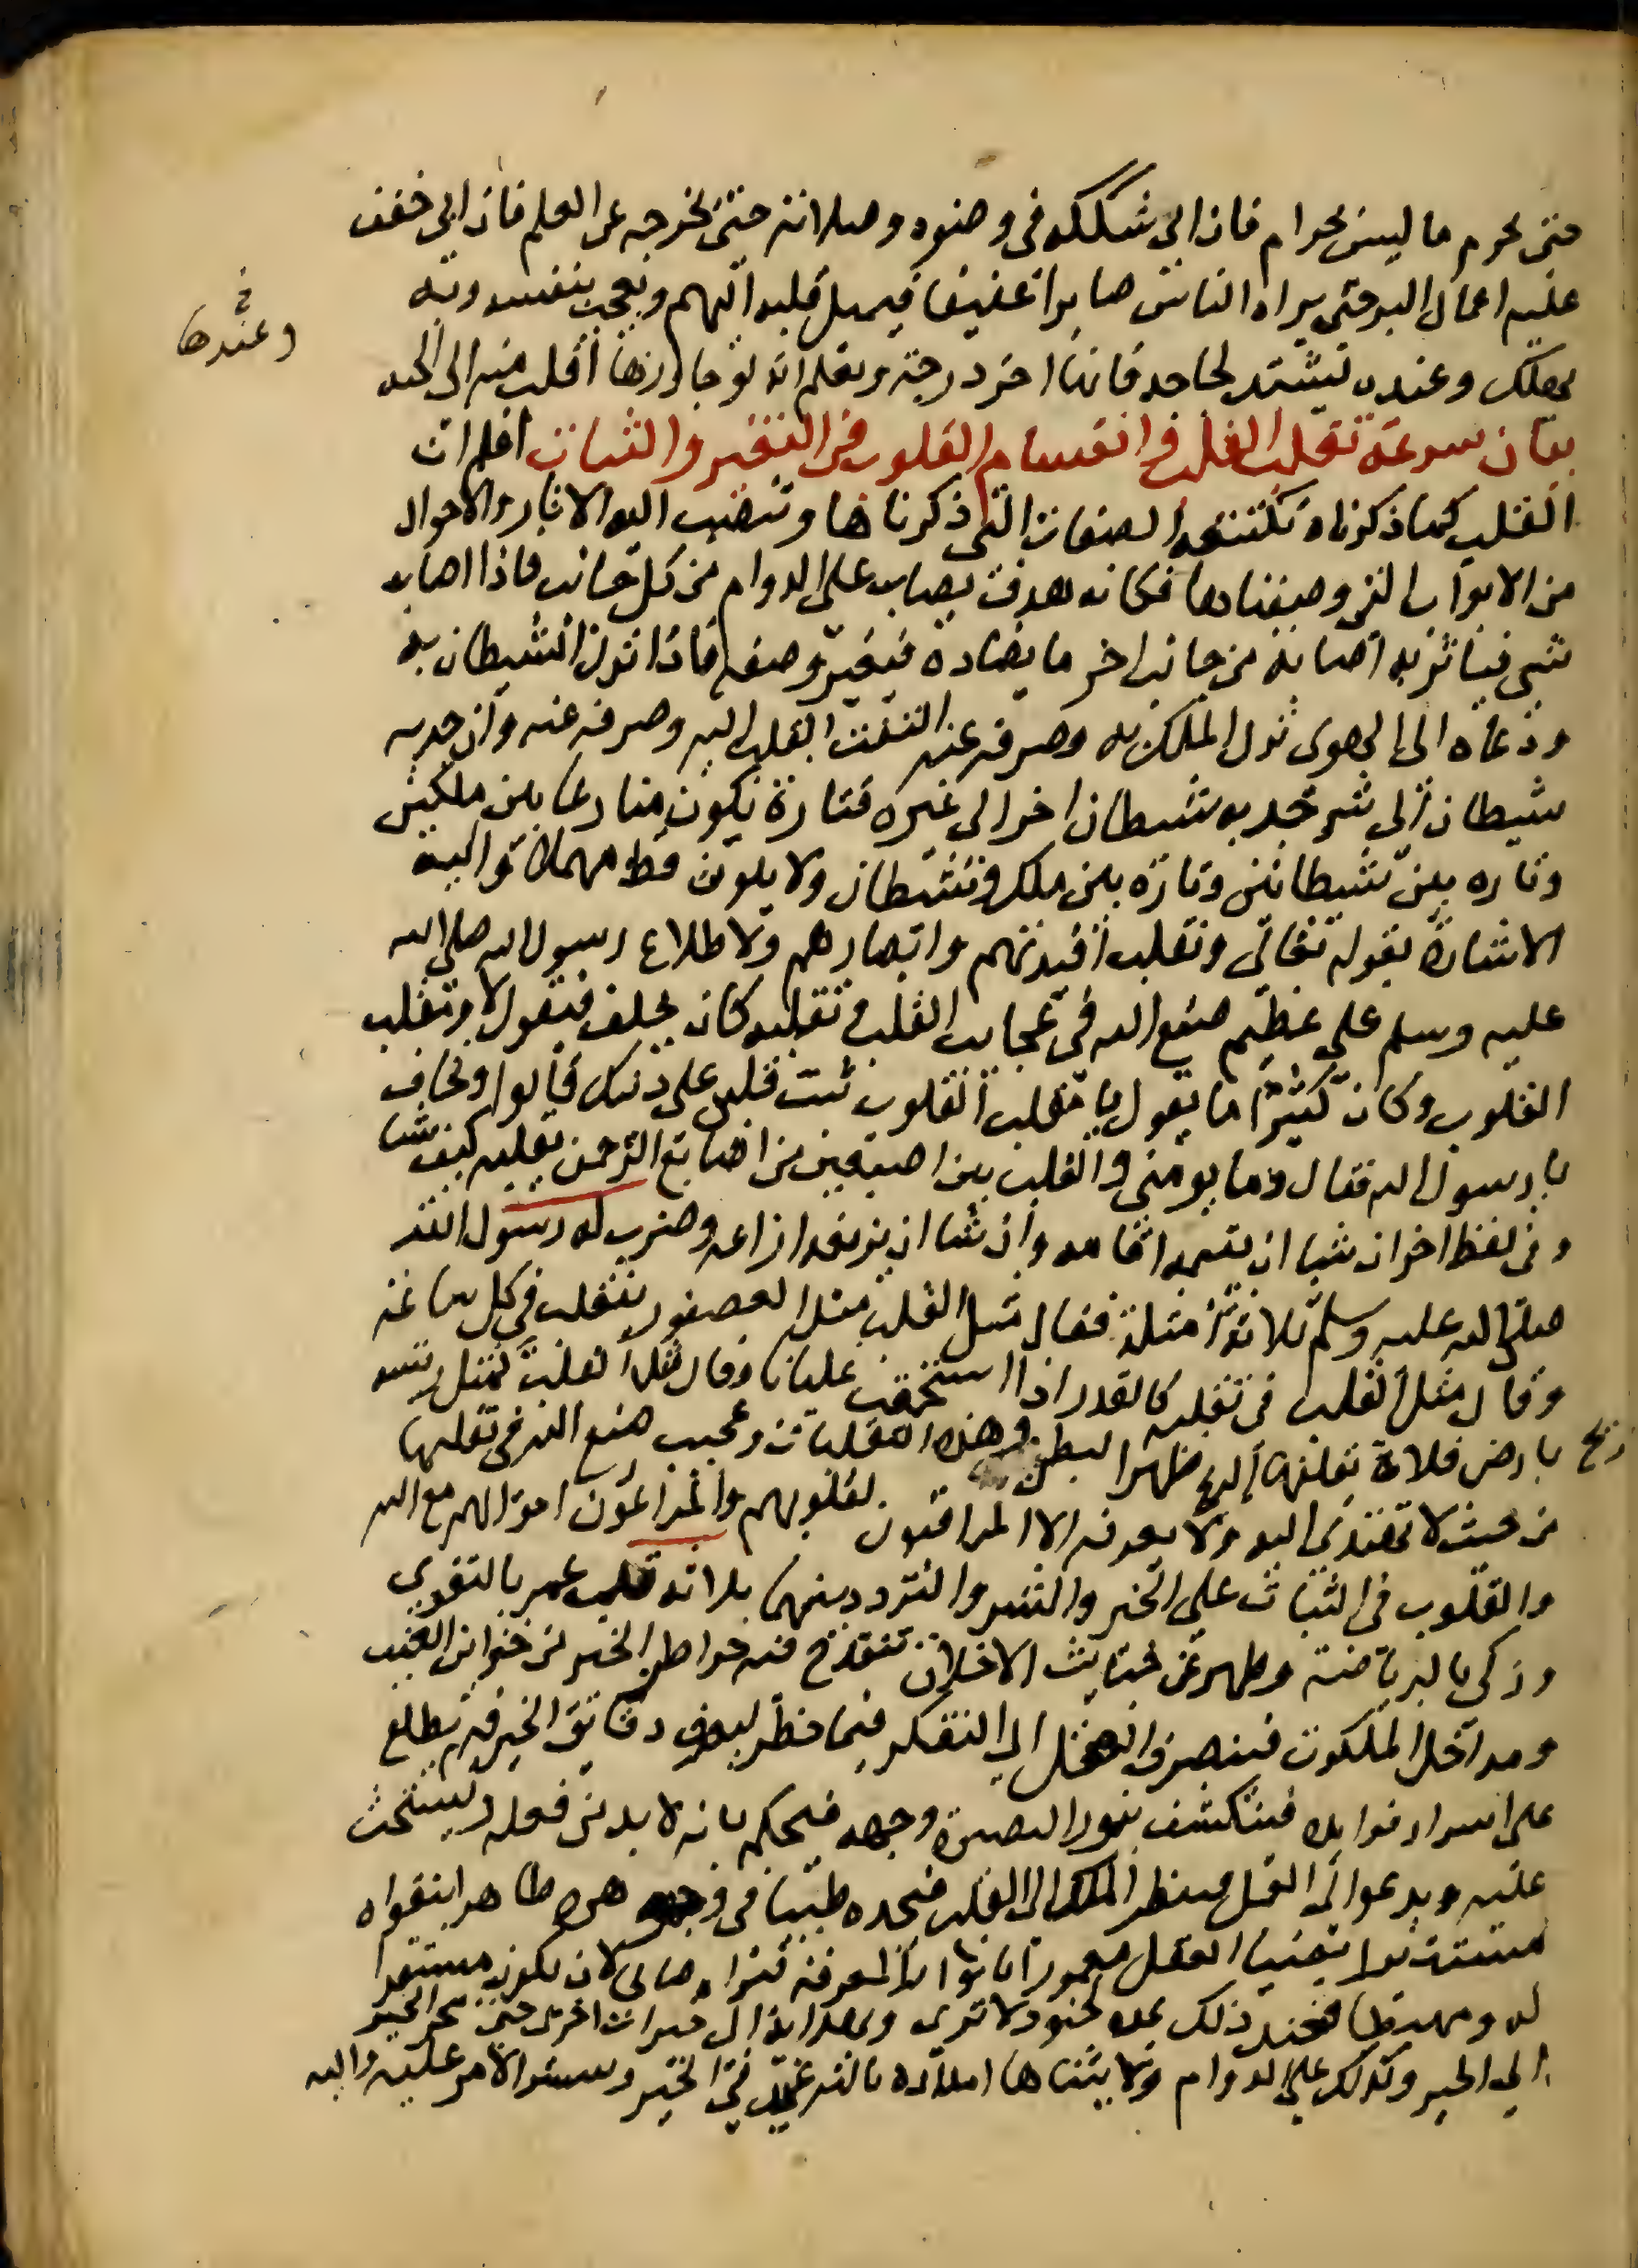 حتى يحرم ما ليس بحرام فان ابى شككه في وضوه وصلاته حتى يخرجه عن العلم فان ابى خفف
عليه اعمال البر حتى يراه الناس صابرا عفيفا فيميل قلبه اليهم ويعجب بنفسه وبه
يهلك وعنده يشتد لجاجه فانها اخر درجة ويعلم انه لو جاوزها افلت منه الى الجنه
وعندها
بيان سرعة تقلب القلب وانقسام القلوب في التغير والثبات اعلم ان
القلب كما ذكرناه تكتنفه الصفات التي ذكرناها وتنصب اليه الاثار والاحوال
من الابواب التي وصفناها فكانه هدف يصاب على الدوام من كل جانب فاذا اصابه
شي فيتاثر به اصابه من جانب اخر ما يضاده فيتغير وصفه فاذا نزل الشيطان به
ودعاه الى الهوى نزل الملك به وصرفه عنه التفت القلب اليه وصرفه عنه وان جذبه
شيطان الى شر جذبه شيطان اخر الى غيره فتارة يكون متنازعا بين ملكين
وتاره بين شيطانين وتارة بين ملك وشيطان ولا يكون قط مهملا واليه
الاشارة بقوله تعالى ونقلب افئدتهم وابصارهم ولاطلاع رسول الله صلى الله
عليه وسلم على عظيم صنع الله في عجايب القلب وتقلبه كان يحلف فيقول لا ومقلب
القلوب وكان كثيرا ما يقول يا مقلب القلوب ثبت قلبي على دينك قالوا وتخاف
يا رسول الله فقال وما يومنني والقلب بين اصبعين من اصابع الرحمن يقلبه كيف شا
وفي لفظ اخر ان شا ان يقيمه اقامه وان شا ان يزيغه ازاغه وضرب له رسول الله
صلى الله عليه وسلم ثلاثة امثلة فقال مثل القلب مثل العصفور يتقلب في كل ساعه
وقال مثل القلب في تقلبه كالقدر اذا استجمعت غليانا وقال مثل القلب كمثل ريشه
بارض فلاة تقلبها الريح ظهرا لبطن وهذه التقلبات وعجيب صنع الله في تقلبها
من حيث لا تهتدى اليه ولا يعرفه الا المراقبون لقلوبهم والمراعون احوالهم مع الله
والقلوب في الثبات على الخير والشر والتردد بينهما ثلاثة قلب عمر بالتقوى
وزكى بالرياضة وطهر عن خبايث الاخلاق تنقدح فيه خواطر الخير من خزاين الغيب
ومداخل الملكوت فينصرف العقل الى التفكر فيما خطر ليعرف دقايق الخير فيه ويطلع
على اسرار فوايده فينكشف بنور البصيرة وجهه فيحكم بانه لا بد من فعله ويستحث
عليه ويدعوا الى العمل فينظر الملك الى القلب فيجده طيبا في جوهره طاهرا بتقواه
مستنيرا بضيا العقل معمورا بانوار المعرفة فيراه صالحا لان يكون مستقرا
له ومهبطا فعند ذلك يمده بجنود لا ترى ويهديه الى خيرات اخرى حتى ينجر الخير
الى الخير وكذلك على الدوام ولا يتناها امداده بالترغيب في الخير وتيسير الامر عليه واليه